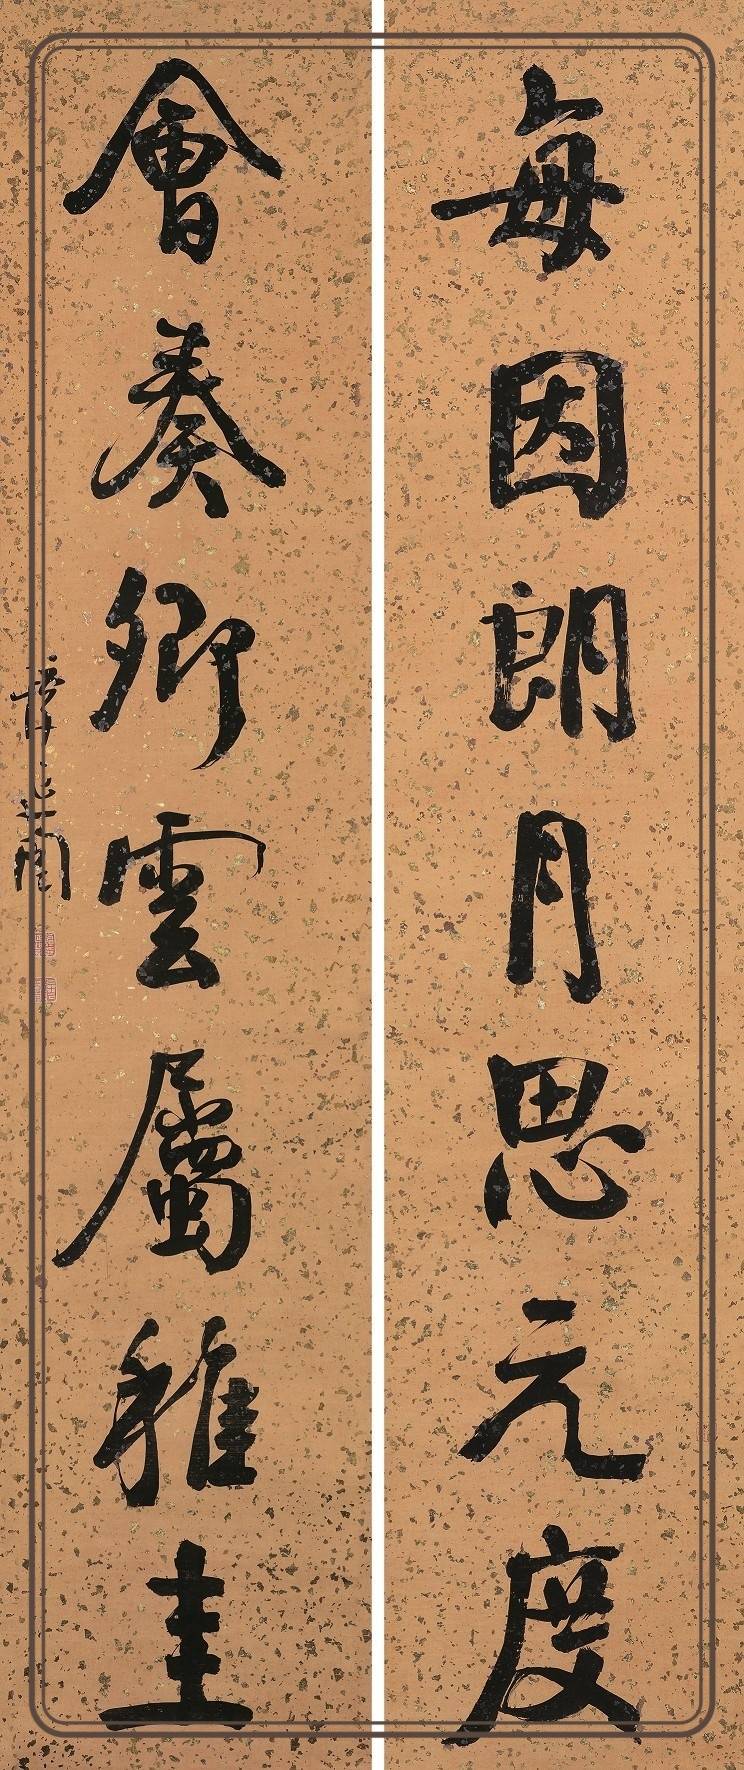 每因朗月思元度
會奏卿雲屬雅圭